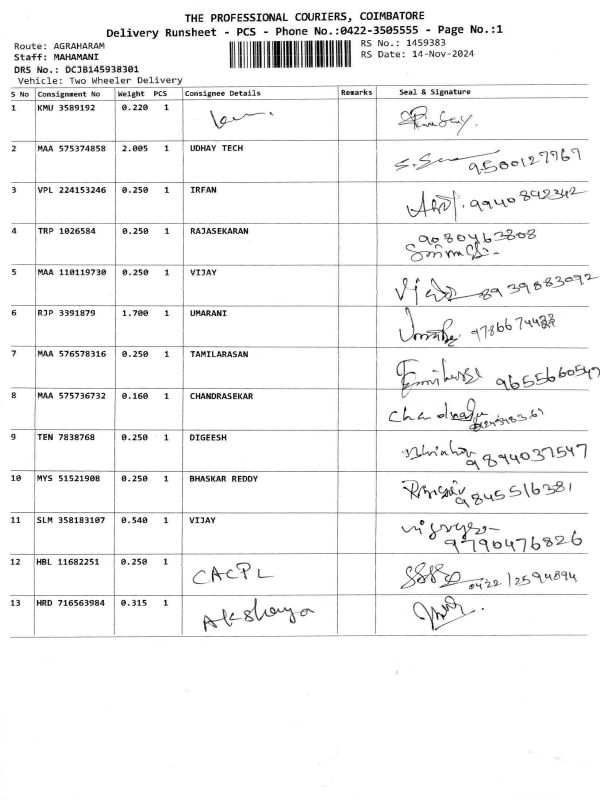 THE PROFESSIONAL COURIERS, COIMBATORE
Delivery Runsheet - PCS - Phone No.:0422-3505555 - Page No.:1
Route: AGRAHARAM RS No.: 1459383
Staff: MAHAMANI RS Date: 14-Nov-2024
DRS No.: DCJB145938301
Vehicle: Two Wheeler Delivery
S No Consignment No Weight PCS Consignee Details Remarks Seal & Signature
1 KMU 3589192 0.220 1
2 MAA 575374858 2.005 1 UDHAY TECH 9500127767
3 VPL 224153246 0.250 1 IRFAN 9940892342
4 TRP 1026584 0.250 1 RAJASEKARAN 9080463808
5 MAA 110119730 0.250 1 VIJAY 8939883092
6 RJP 3391879 1.700 1 UMARANI
7 MAA 576578316 0.250 1 TAMILARASAN 9655660547
8 MAA 575736732 0.160 1 CHANDRASEKAR
9 TEN 7838768 0.250 1 DIGEESH 9894037547
10 MYS 51521908 0.250 1 BHASKAR REDDY 9845516381
11 SLM 358183107 0.540 1 VIJAY 9790476826
12 HBL 11682251 0.250 1 CACPL 0422/2594894
13 HRD 716563984 0.315 1 Akshaya